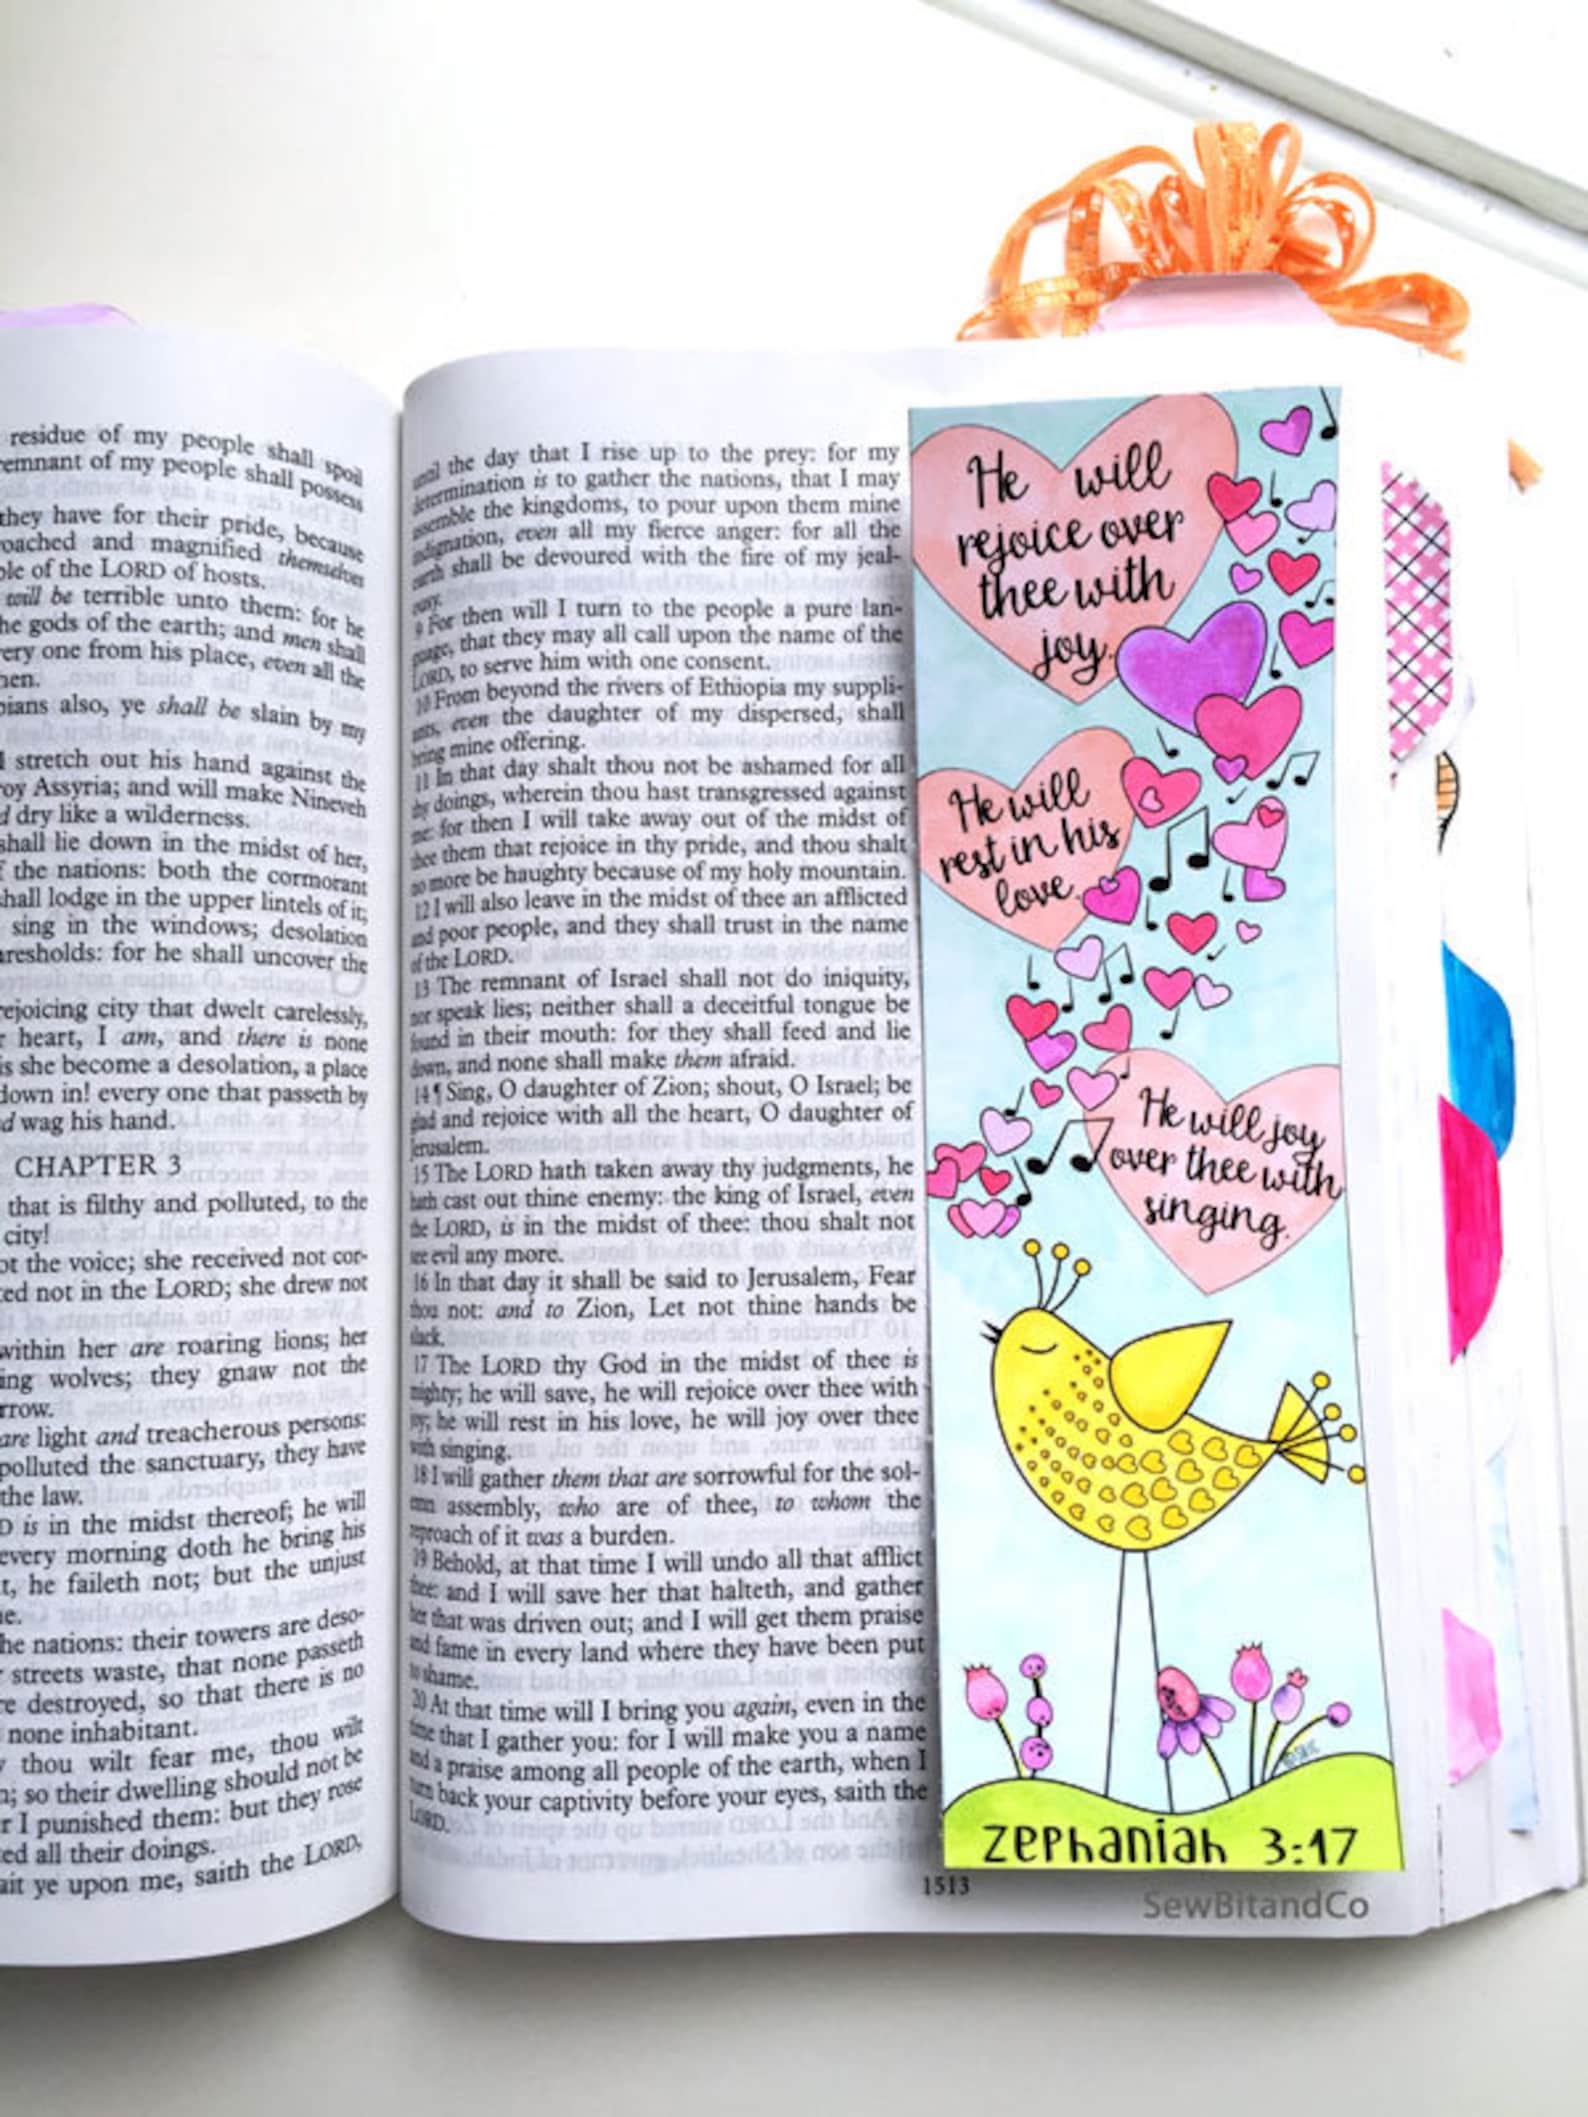 residue of my people shall spoil
remnant of my people shall possess
they have for their pride, because
and magnified themselves
of the LORD of hosts.
will be terrible unto them: for he
the gods of the earth; and men shall
every one from his place, even all the
also, ye shall be slain by my
stretch out his hand against the
Assyria; and will make Nineveh
dry like a wilderness.
shall lie down in the midst of her,
the nations: both the cormorant
shall lodge in the upper lintels of it;
sing in the windows; desolation
thresholds: for he shall uncover the
rejoicing city that dwelt carelessly,
heart, I am, and there is none
is she become a desolation, a place
down in! every one that passeth by
wag his hand.
CHAPTER 3
that is filthy and polluted, to the
city!
the voice; she received not cor-
not in the LORD; she drew not
within her are roaring lions; her
wolves; they gnaw not the
are light and treacherous persons:
polluted the sanctuary, they have
the law.
is in the midst thereof; he will
every morning doth he bring his
he faileth not; but the unjust
nations: their towers are deso-
streets waste, that none passeth
destroyed, so that there is no
none inhabitant.
thou wilt fear me, thou wilt
so their dwelling should not be
I punished them: but they rose
all their doings.
ye upon me, saith the LORD,
until the day that I rise up to the prey: for my
determination is to gather the nations, that I may
assemble the kingdoms, to pour upon them mine
indignation, even all my fierce anger: for all the
earth shall be devoured with the fire of my jeal-
ousy.
9 For then will I turn to the people a pure lan-
guage, that they may all call upon the name of the
LORD, to serve him with one consent.
10 From beyond the rivers of Ethiopia my suppli-
ants, even the daughter of my dispersed, shall
bring mine offering.
11 In that day shalt thou not be ashamed for all
thy doings, wherein thou hast transgressed against
me: for then I will take away out of the midst of
thee them that rejoice in thy pride, and thou shalt
no more be haughty because of my holy mountain.
12 I will also leave in the midst of thee an afflicted
and poor people, and they shall trust in the name
of the LORD.
13 The remnant of Israel shall not do iniquity,
nor speak lies; neither shall a deceitful tongue be
found in their mouth: for they shall feed and lie
down, and none shall make them afraid.
14 ¶ Sing, O daughter of Zion; shout, O Israel; be
glad and rejoice with all the heart, O daughter of
Jerusalem.
15 The LORD hath taken away thy judgments, he
hath cast out thine enemy: the king of Israel, even
the LORD, is in the midst of thee: thou shalt not
see evil any more.
16 In that day it shall be said to Jerusalem, Fear
thou not: and to Zion, Let not thine hands be
slack.
17 The LORD thy God in the midst of thee is
mighty; he will save, he will rejoice over thee with
joy; he will rest in his love, he will joy over thee
with singing.
18 I will gather them that are sorrowful for the sol-
emn assembly, who are of thee, to whom the
reproach of it was a burden.
19 Behold, at that time I will undo all that afflict
thee: and I will save her that halteth, and gather
her that was driven out; and I will get them praise
and fame in every land where they have been put
to shame.
20 At that time will I bring you again, even in the
time that I gather you: for I will make you a name
and a praise among all people of the earth, when I
turn back your captivity before your eyes, saith the
LORD.
1513
He will
rejoice over
thee with
joy.
He will
rest in his
love.
He will joy
over thee with
singing.
ZEPHANIAH 3:17
SewBitandCo